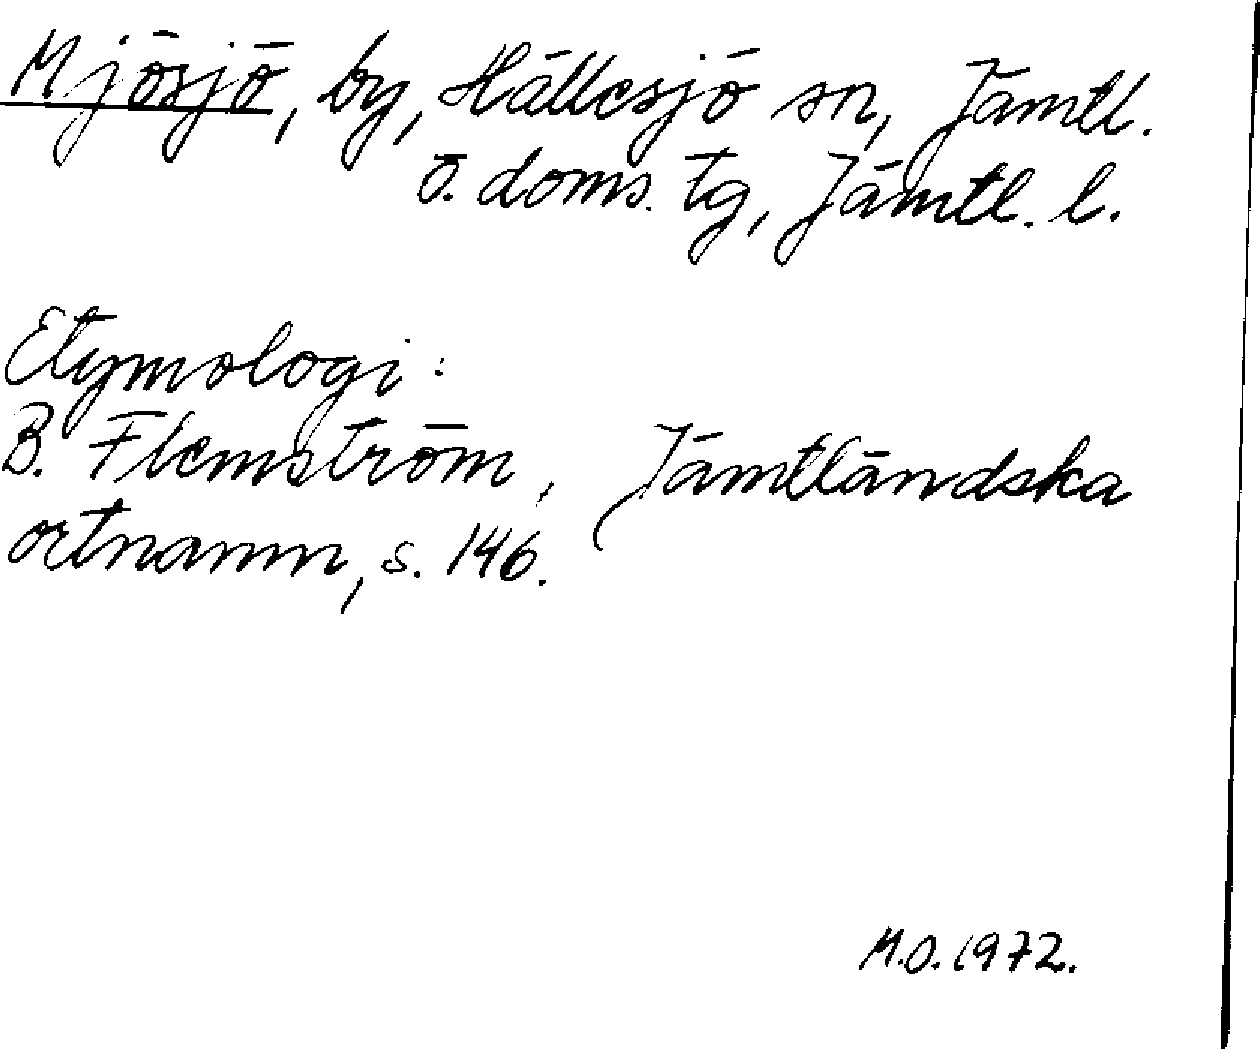 Mjösjö, by, Hällesjö sn, Jämtl.
ö. doms. tg, Jämtl. l.
Etymologi:
B. Flemström, Jämtländska
ortnamn, s. 146.
M.O. 1972.